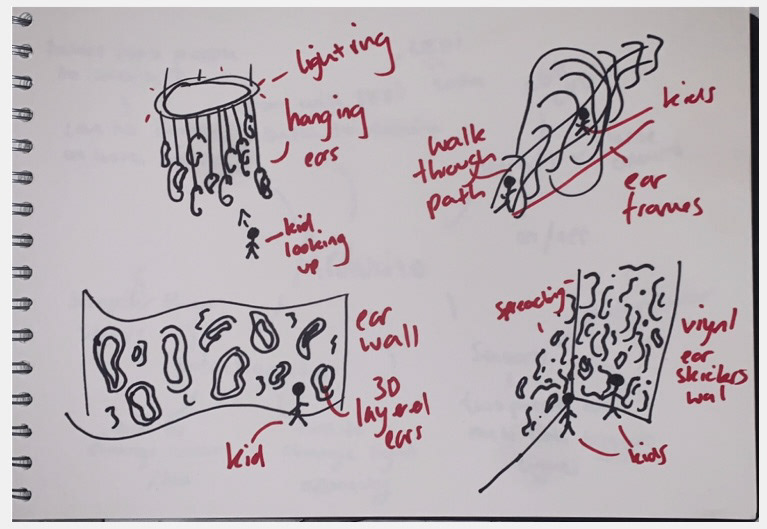 lighting
hanging
ears
kid
looking
up
kids
walk
through
path
ear
frames
ear
wall
3D
layered
ears
kid
spreading
vinyl
ear
stickers
wall
kids